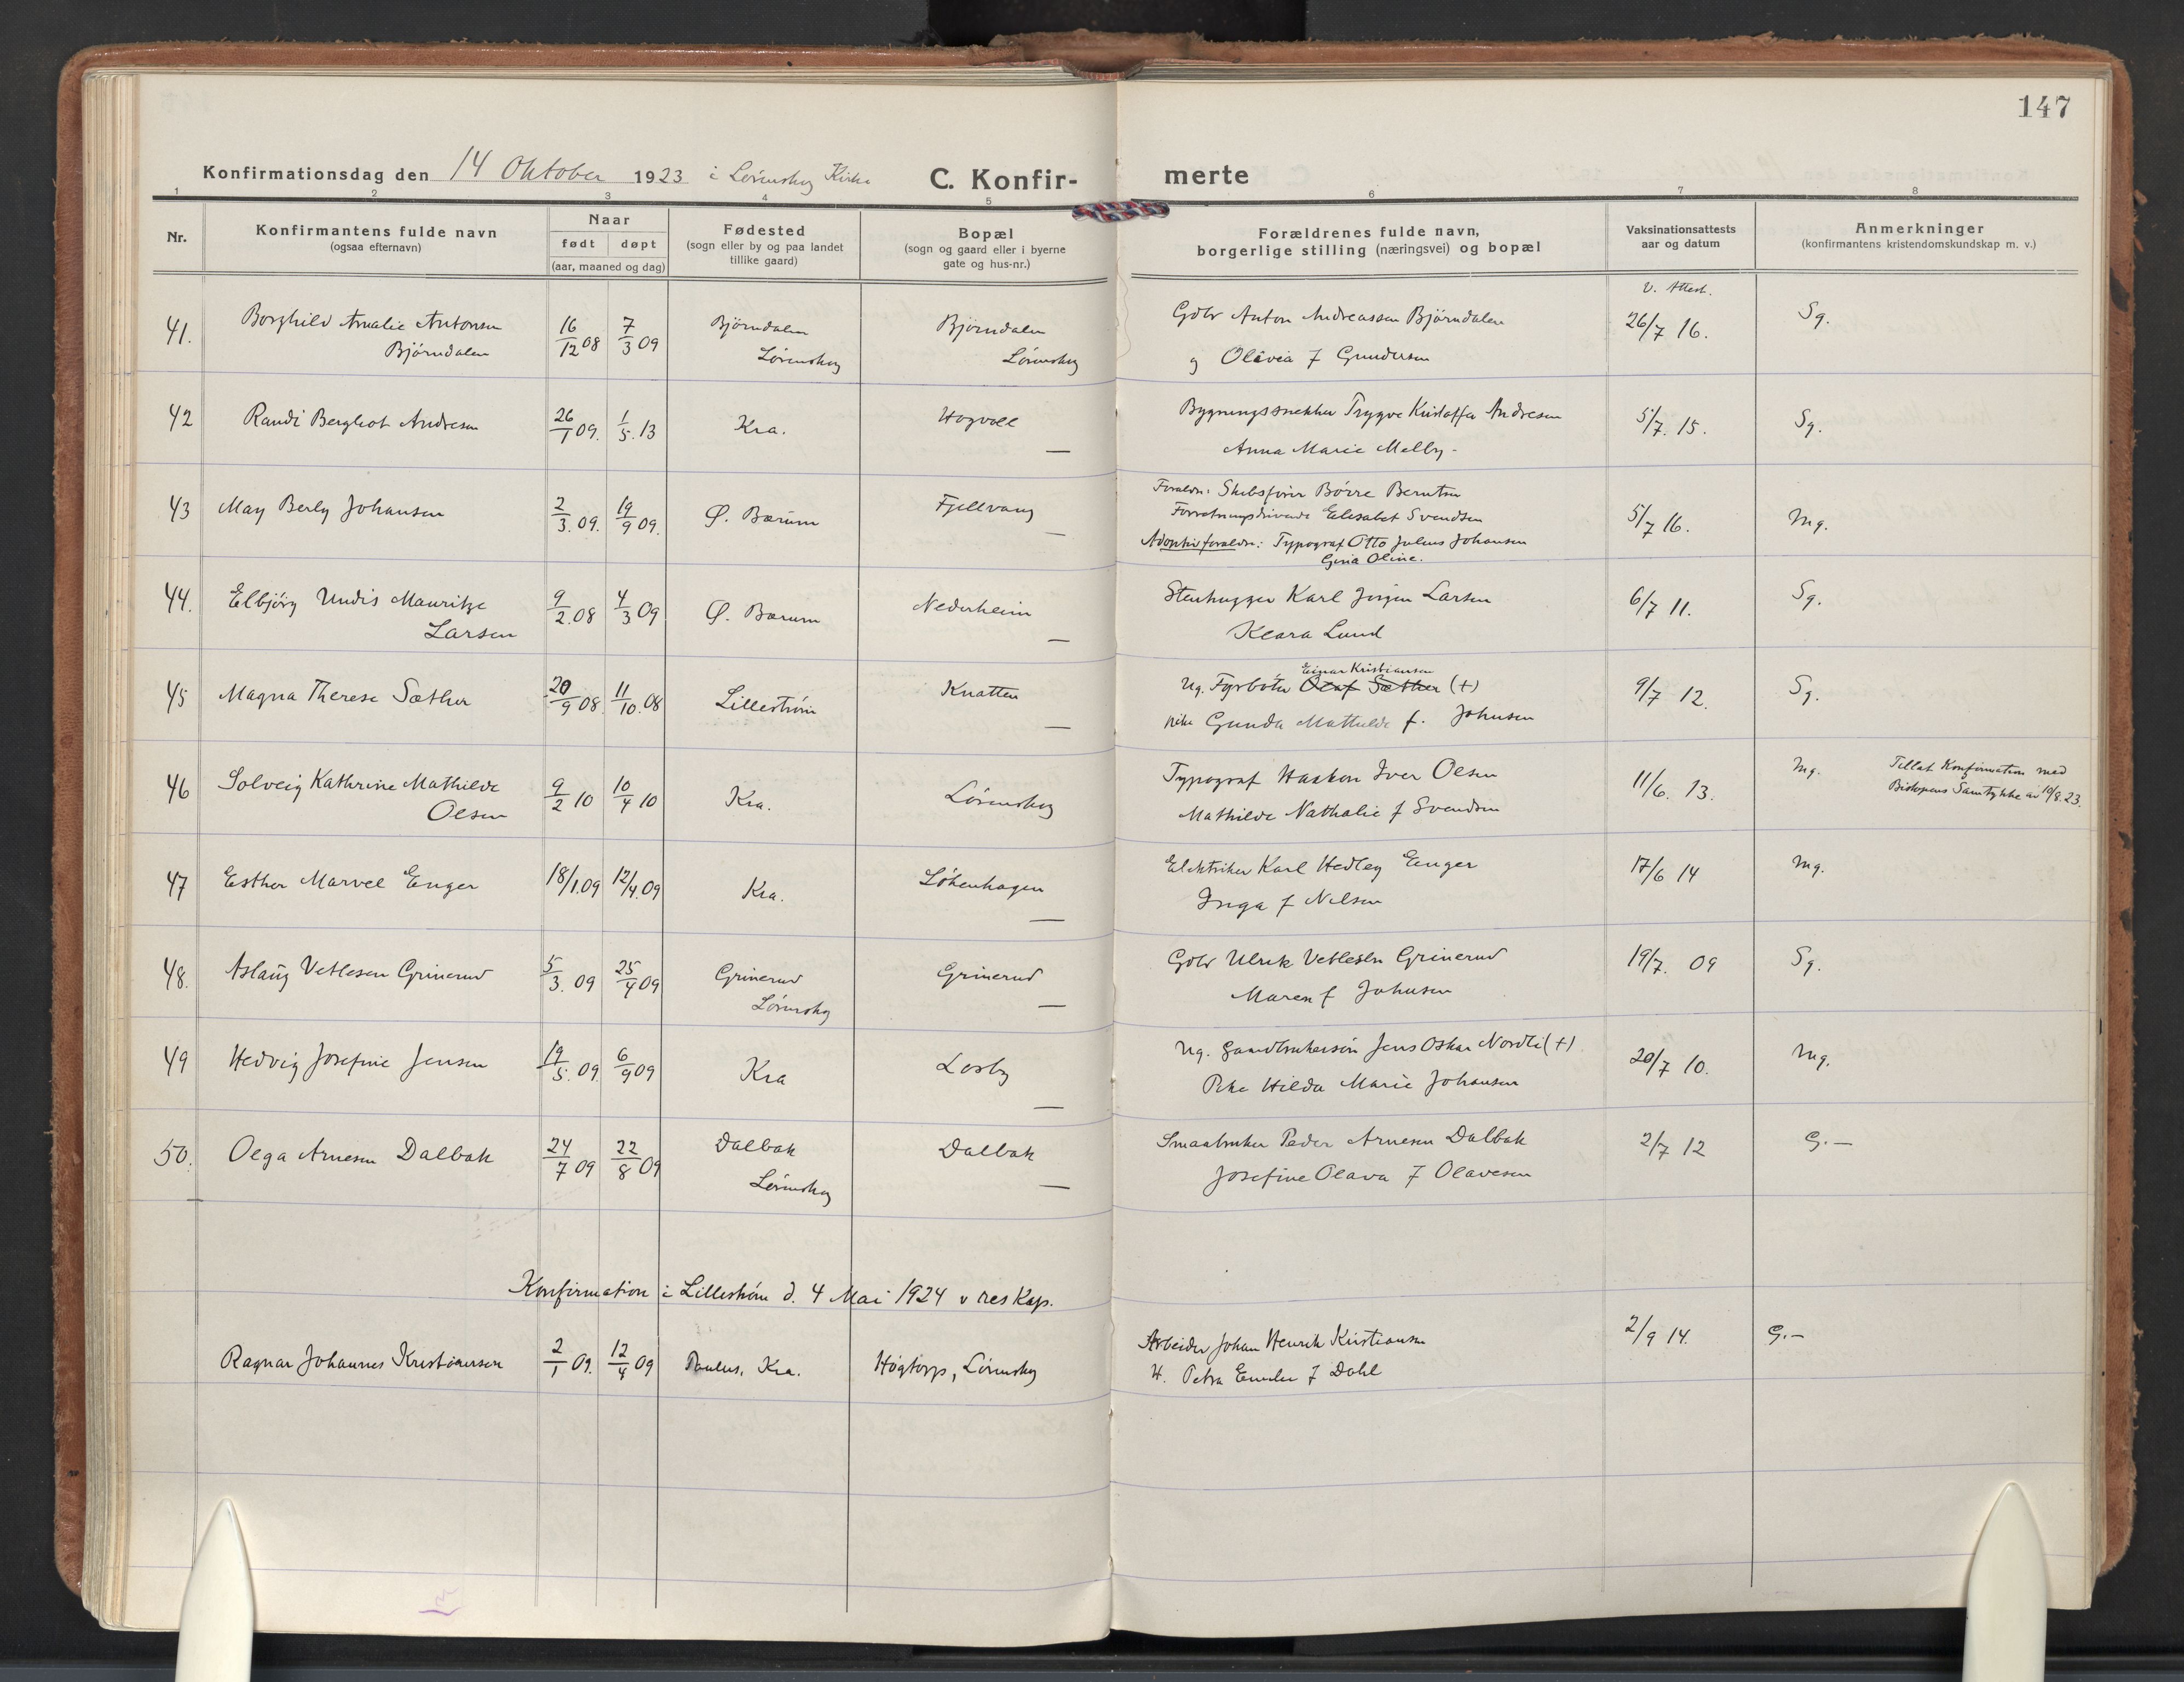 147
Konfirmationsdag den 14 Oktober 1923 i Lørenskog Kirke
C. Konfir-
merte
1 2 3 4 5 6 7 8
Nr.
Konfirmantens fulde navn
(ogsaa efternavn)
Naar
født døpt
(aar, maaned og dag)
Fødested
(sogn eller by og paa landet
tillike gaard)
Bopæl
(sogn og gaard eller i byerne
gate og hus-nr.)
Forældrenes fulde navn,
borgerlige stilling (næringsvei) og bopæl
Vaksinationsattests
aar og datum
Anmerkninger
(konfirmantens kristendomskundskap m. v.)
V. Attest.
41. Borghild Amalie Antonsen 16/12 08 7/3 09 Bjørndalen Bjørndalen Gdbr Anton Andreassen Bjørndalen 26/7 16. Sg.
Bjørndalen Lørenskog Lørenskog g Olivia f Gundersen
42 Randi Bergliot Andresen 26/1 09. 1/5. 13 Kra. Hogvoll Bygningssnekker Trygve Kristoffer Andresen 5/7. 15. Sg.
— Anna Marie Melby -
43 May Berly Johansen 2/3. 09. 19/9 09. Ø. Bærum Fjellvang Foræld: Skibsfører Børre Berntsen 5/7 16. Mg.
— Forretningsdrivende Elisabet Svendsen
Adoptivforældr: Typograf Otto Julius Johansen
Gina Oline.
44. Elbjørg Undis Mauritze 9/2. 08 4/3 09 Ø. Bærum Nederheim Stenhugger Karl Jørgen Larsen 6/7 11. Sg.
Larsen — Klara Lund
45 Magna Therese Sæther 20/9 08 11/10. 08 Lillestrøm Knatten Ug. Fyrbøter Olaf Sæther (+) 9/7 12. Sg.
Einar Kristiansen
— pike Gunda Mathilde f. Johnsen
46 Solveig Kathrine Mathilde 9/2 10 10/4 10 Kra. Lørenskog Typograf Haakon Iver Olsen 11/6. 13. Mg. Tillat Konfirmation med
Olsen Mathilde Nathalie f Svendsen Biskopens Samtykke av 10/8. 23.
47 Esther Marvel Enger 18/1. 09 12/4. 09 Kra. Løkenhagen Elektriker Karl Hedley Enger 17/6 14 Mg.
— Inga f Nilsen
48. Aslaug Vetlesen Grinerud 5/3. 09 25/4 09 Grinerud Grinerud Gdbr Ulrik Vetlesen Grinerud 19/7. 09 Sg.
Lørenskog — Maren f Johnsen
49 Hedvig Josefine Jensen 19/5. 09. 6/9 09 Kra Losby Ug. Jens Oskar Nordli (+) 20/7 10. Mg.
— Pike Hilda Marie Johansen
50. Olga Arnesen Dalbak 24/7 09 22/8 09 Dalbak Dalbak Smaabruker Peder Arnesen Dalbak 2/7 12 G. —
Lørenskog — Josefine Olava f Olavesen
Konfirmation i Lillestrøm d. 4 Mai 1924 v res Kap.
Ragnar Johannes Kristiansen 2/1 09. 12/4 09 Paulus, Kra. Høgtorp, Lørenskog Arbeider Johan Henrik Kristiansen 2/9 14. G. —
H. Petra f Dahl